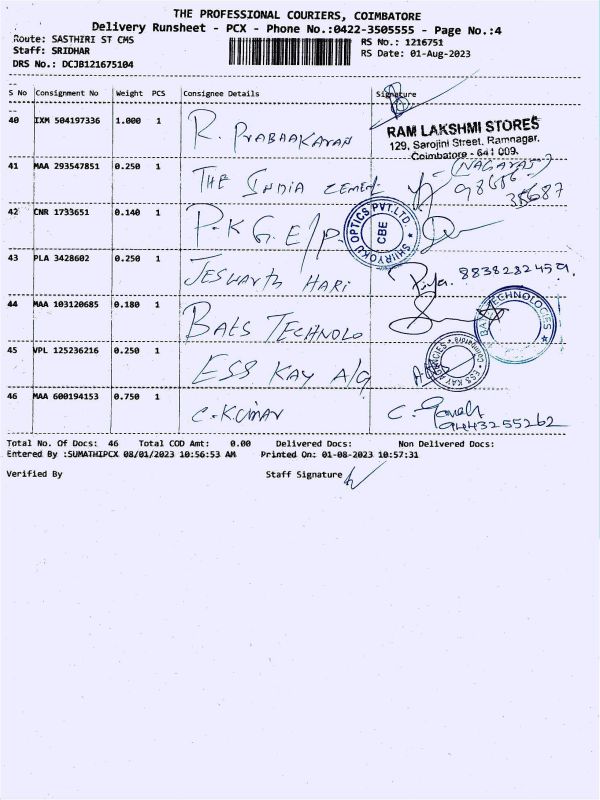 THE PROFESSIONAL COURIERS, COIMBATORE
Delivery Runsheet - PCX - Phone No.:0422-3505555 - Page No.:4
Route: SASTHIRI ST CMS
RS No.: 1216751
Staff: SRIDHAR
RS Date: 01-Aug-2023
DRS No.: DCJB121675104
S No Consignment No Weight PCS Consignee Details Signature
40 IXM 504197336 1.000 1 R. PRABAAKARAN
RAM LAKSHMI STORES
129, Sarojini Street, Ramnagar,
Coimbatore - 641 009.
41 MAA 293547851 0.250 1 THE INDIA CEMENT
(NAGARAJ)
42 CNR 1733651 0.140 1 P.K G. E/P
SHIIRYOKU OPTICS PVT.LTD
CBE
43 PLA 3428602 0.250 1 JESWANTH HARI Priya. 8838282459
44 MAA 103120685 0.180 1 BAES TECHNOLO
TECHNOLOGIES
45 VPL 125236216 0.250 1 ESS KAY A/G
ESS KAY AGENCIES
Coimbatore
46 MAA 600194153 0.750 1 C. KUMAR C.
9443255262
Total No. Of Docs: 46 Total COD Amt: 0.00 Delivered Docs: Non Delivered Docs:
Entered By :SUMATHIPCX 08/01/2023 10:56:53 AM Printed On: 01-08-2023 10:57:31
Verified By Staff Signature